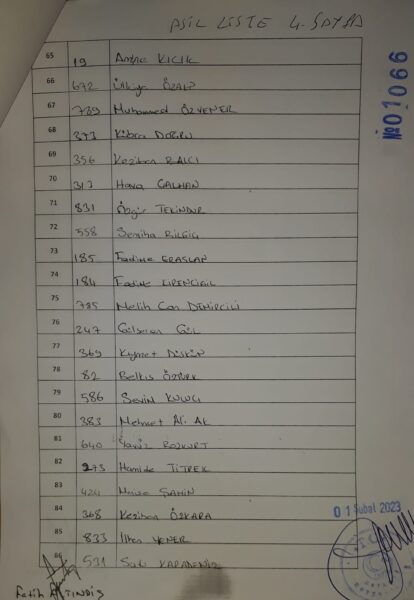 ASİL LİSTE 4. SAYFA
No 01066
65 19 KILIK
66 672 Ülkiye ÖZAN
67 789 Muhammed ÖZYENER
68 373 Kübra DOĞRU
69 356 Keziban BALCI
70 313 Hava ÇALHAN
71 831 Özgür TEKİNDUR
72 558 Semiha BİLGİÇ
73 185 Fadime ERASLAN
74 184 Fadime
75 785 Melih Can DEMİRCİLİ
76 247 Gülseren GÜL
77 369 Kıymet DİŞKİN
78 82 Belkıs ÖZTÜRK
79 586 Sevim KULUÇ
80 383 Mehmet Ali AK
81 640 Yavuz BOZKURT
82 273 Hamide TİTREK
83 424 ŞAHİN
84 368 Keziban ÖZKARA
85 833 İlhan YENER
86 531 Satı KARADENİZ
01 Şubat 2023
Fatih ALTINDİŞ